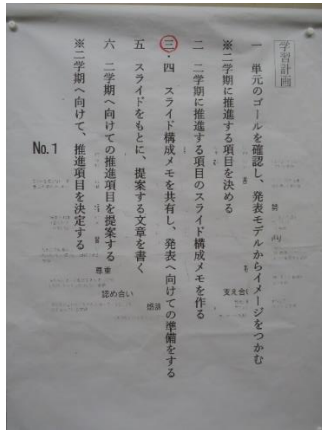 学習計画
一 単元のゴールを確認し、発表モデルからイメージをつかむ
※二学期に推進する項目を決める
二 二学期に推進する項目のスライド構成メモを作る
三・四 スライド構成メモを共有し、発表へ向けての準備をする
五 スライドをもとに、提案する文章を書く
六 二学期へ向けての推進項目を提案する
※二学期へ向けて、推進項目を決定する
No.1
支え合い
認め合い